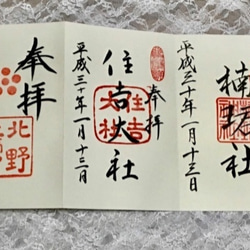 楠珺社
平成三十年一月十三日
奉拝
住吉大社
住吉大社
平成三十年一月十三日
奉拝
北野